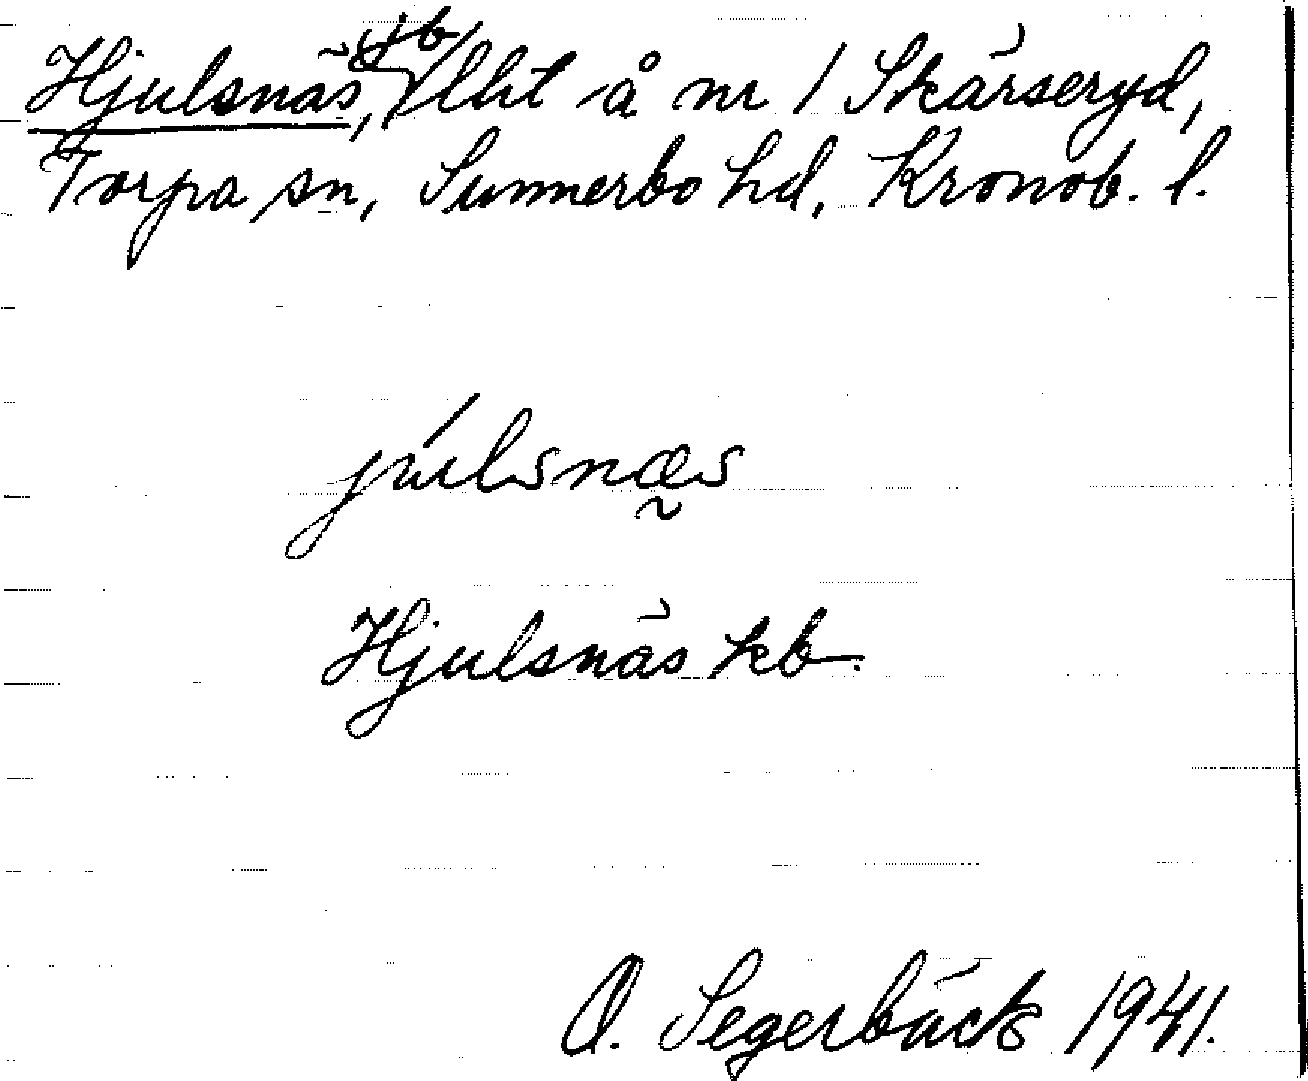 Hjulsnäs, jb lht å nr 1 Skärseryd,
Torpa sn, Sunnerbo hd, Kronob. l.
júlsnæ̰s
Hjulsnäs kb.
O. Segerbäck 1941.